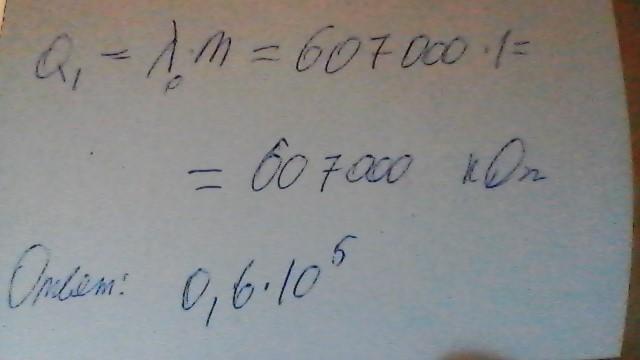 Q₁ = λ₀·m = 607000·1=
= 607000 кДж
Ответ: 0,6·10⁵